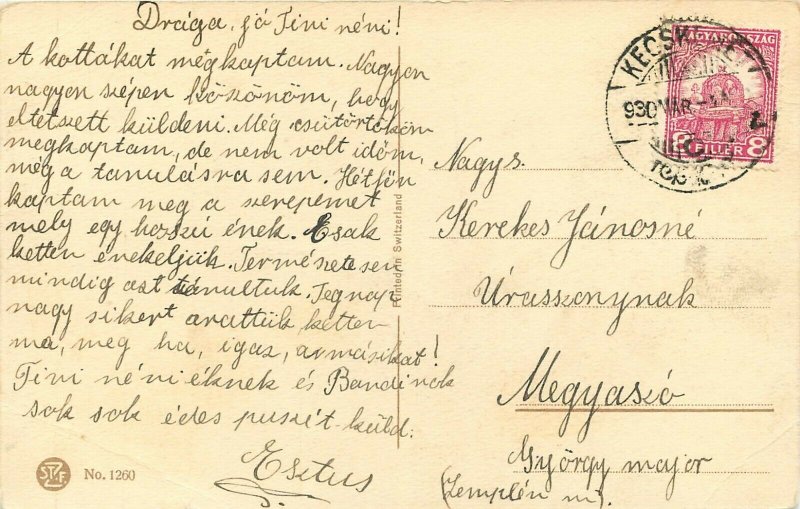 Drága, jó Tini néni!
A kottákat megkaptam. Nagyon
nagyon szépen köszönöm, hogy
eltetszett küldeni. Még csütörtökön
megkaptam, de nem volt időm,
még a tanulásra sem. Hétfőn
kaptam meg a szerepemet
mely egy hosszú ének. Csak
ketten énekeljük. Természetesen
mindig azt tanultuk. Tegnap
nagy sikert arattunk ketten
ma, meg ha, igaz,
Tini néniéknek és Bandinak
sok sok édes puszit küld:
Esztus
Nagys.
Kerekes Jánosné
Úrasszonynak
Megyaszó
György major
(Zemplén m).
KECSKEMÉT
930 MÁR
MAGYARORSZÁG
8 FILLÉR 8
Printed in Switzerland
No. 1260